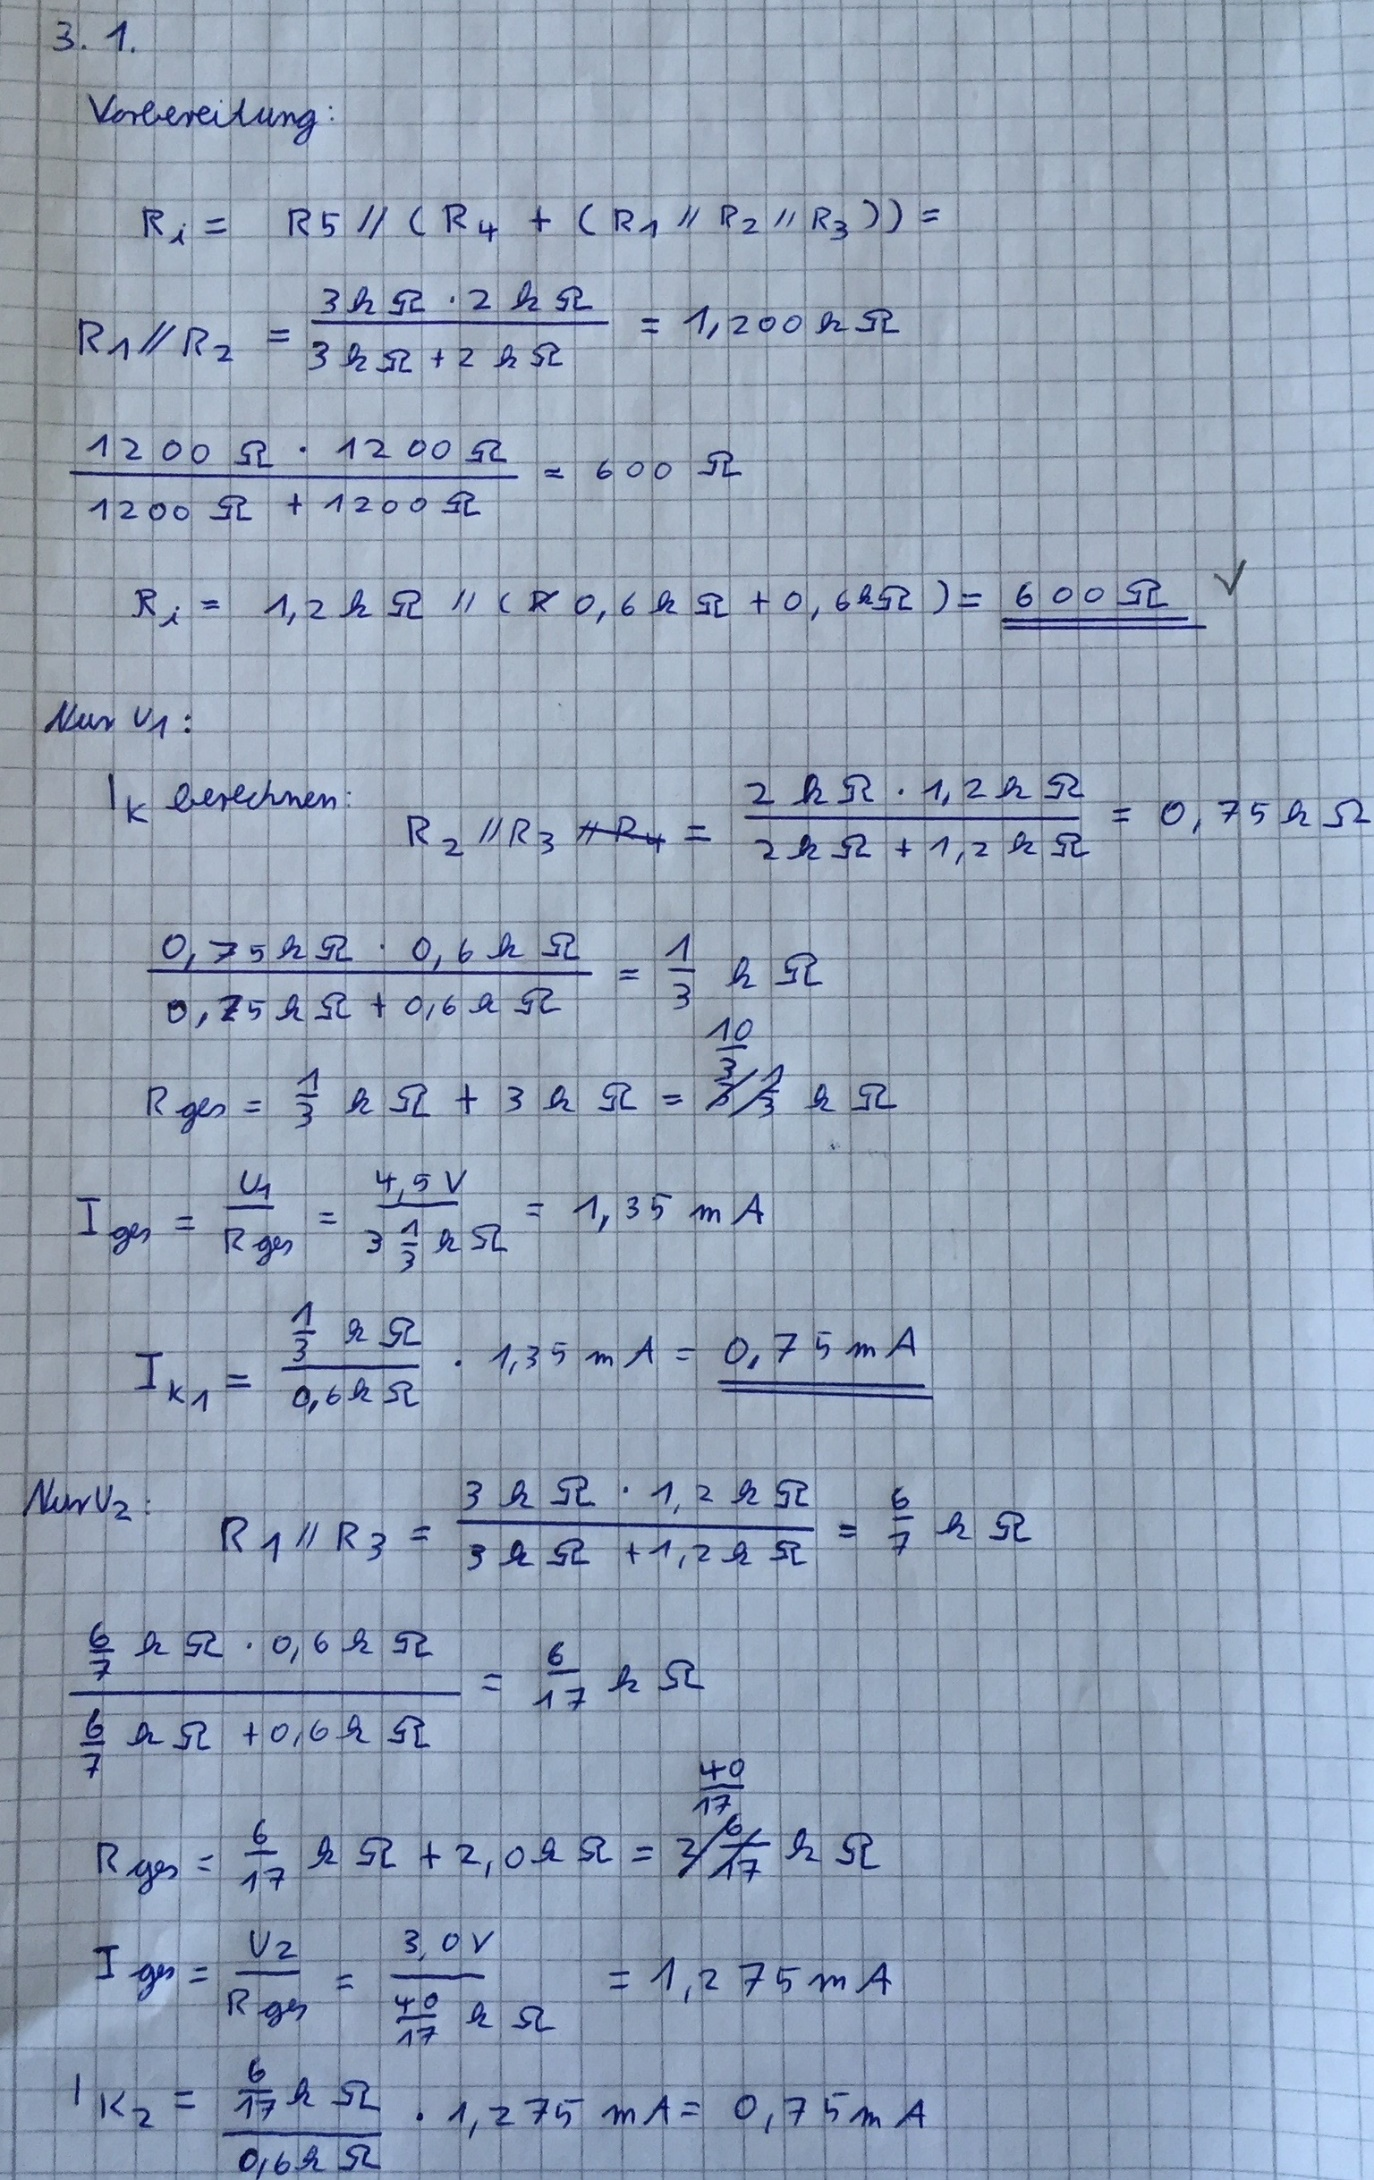 3. 1.
Vorbereitung:
Ri = R5 // (R4 + (R1 // R2 // R3)) =
R1 // R2 = (3kΩ · 2kΩ) / (3kΩ + 2kΩ) = 1,200kΩ
(1200Ω · 1200Ω) / (1200Ω + 1200Ω) = 600Ω
Ri = 1,2kΩ // (0,6kΩ + 0,6kΩ) = 600Ω ✓
Nur U1:
IK berechnen: R2 // R3 ~~// R4~~ = (2kΩ · 1,2kΩ) / (2kΩ + 1,2kΩ) = 0,75kΩ
(0,75kΩ · 0,6kΩ) / (0,75kΩ + 0,6kΩ) = 1/3 kΩ
Rges = 1/3 kΩ + 3kΩ = ~~3 1/3~~ 10/3 kΩ
Iges = U1 / Rges = 4,5V / (3 1/3 kΩ) = 1,35mA
IK1 = (1/3 kΩ) / (0,6kΩ) · 1,35mA = 0,75mA
Nur U2: R1 // R3 = (3kΩ · 1,2kΩ) / (3kΩ + 1,2kΩ) = 6/7 kΩ
(6/7 kΩ · 0,6kΩ) / (6/7 kΩ + 0,6kΩ) = 6/17 kΩ
Rges = 6/17 kΩ + 2,0kΩ = ~~2 6/17~~ 40/17 kΩ
Iges = U2 / Rges = 3,0V / (40/17 kΩ) = 1,275mA
IK2 = (6/17 kΩ) / (0,6kΩ) · 1,275mA = 0,75mA